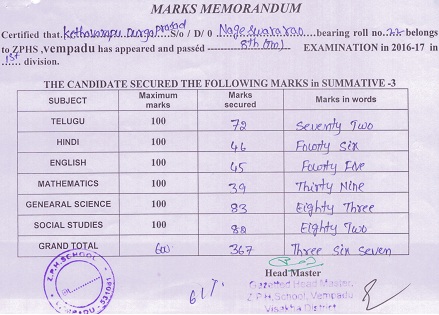 MARKS MEMORANDUM
Certified that Kethavarapu Durga prasad S/o / D/ 0 Nageswararao bearing roll no. 22 belongs
to ZPHS ,vempadu has appeared and passéd 8th (TM) EXAMINATION in 2016-17 in
1st division.
THE CANDIDATE SECURED THE FOLLOWING MARKS in SUMMATIVE -3
SUBJECT Maximum marks Marks secured Marks in words
TELUGU 100 72 Seventy Two
HINDI 100 46 Fourty Six
ENGLISH 100 45 Fourty Five
MATHEMATICS 100 39 Thirty Nine
GENEARAL SCIENCE 100 83 Eighty Three
SOCIAL STUDIES 100 82 Eighty Two
GRAND TOTAL 600 367 Three Six Seven
Z.P.H. SCHOOL
VEMPADU
Head Master
Gazetted Head Master,
Z.P.H, School, Vempadu
Visakha District